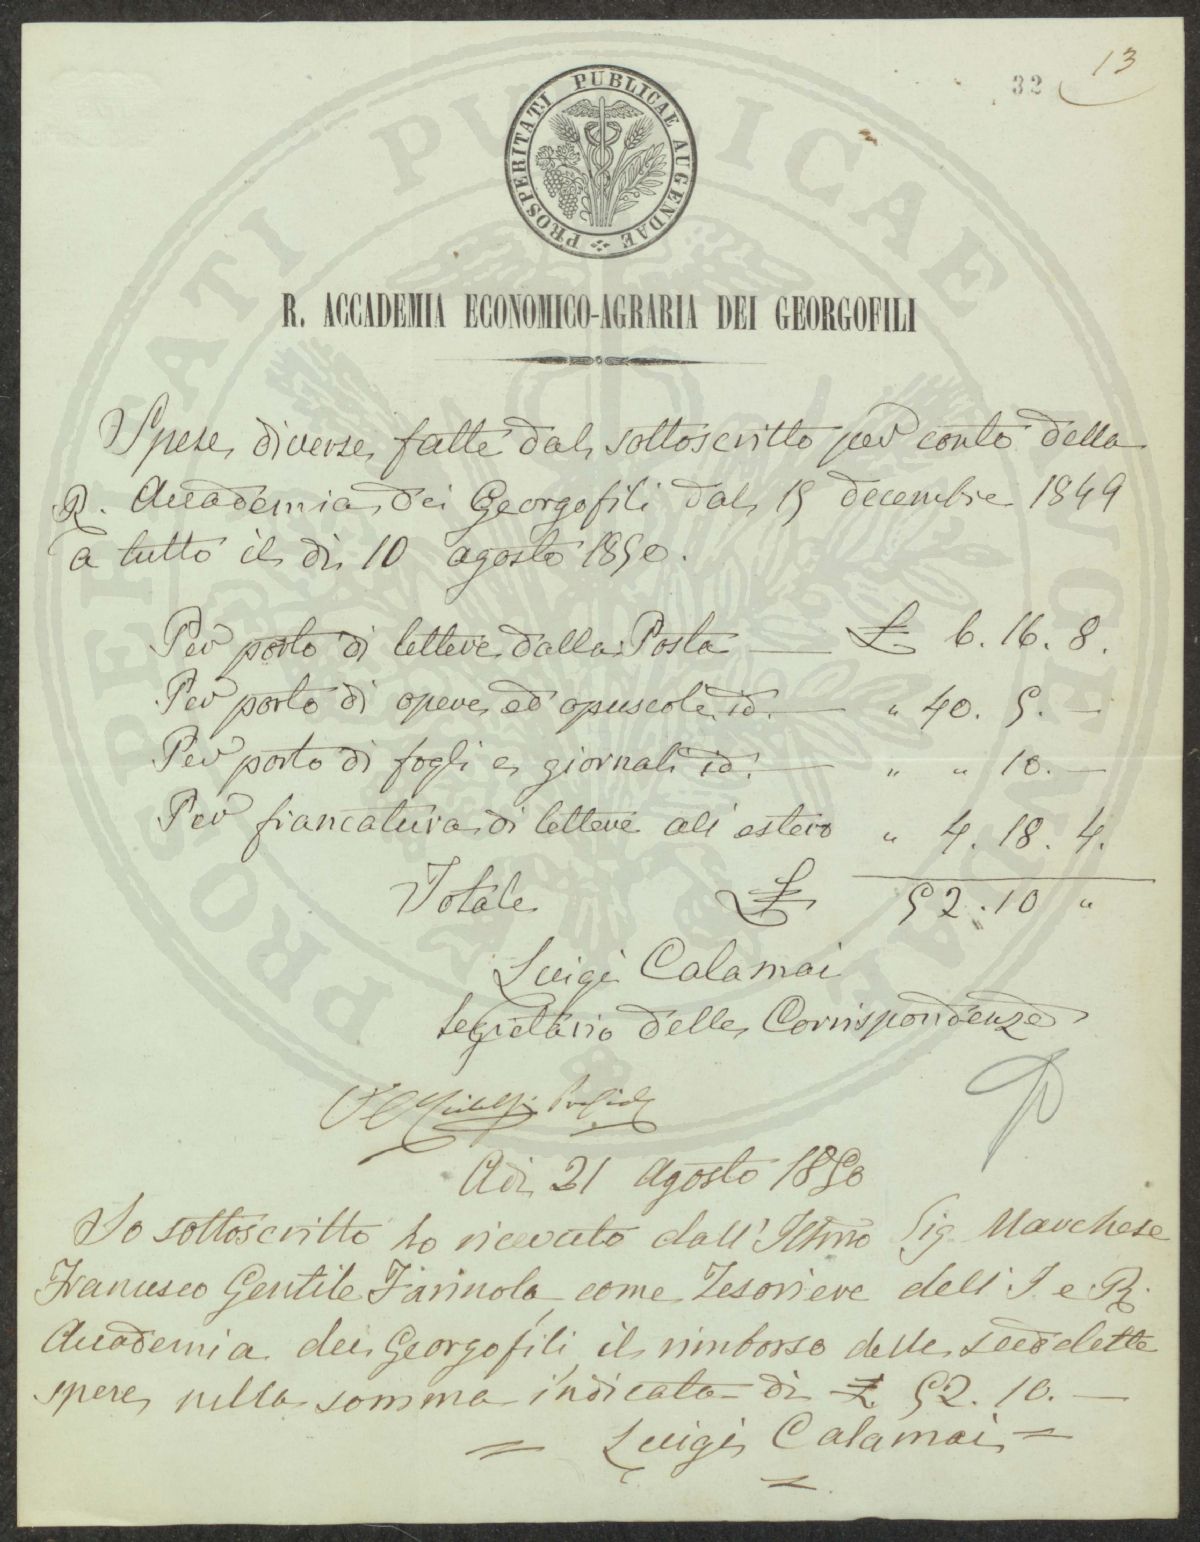 13
32
PROSPERITATI PUBLICAE AUGENDAE
R. ACCADEMIA ECONOMICO-AGRARIA DEI GEORGOFILI
Spese diverse fatte dal sottoscritto per conto della
R. Accademia dei Georgofili dal 15 decembre 1849
a tutto il dì 10 agosto 1850.
Per porto di lettere dalla Posta — £ 6. 16. 8.
Per porto di opere ed opuscoli id. — " 40. 5. —
Per porto di fogli e giornali id. — " " 10. —
Per francatura di lettere all' estero " 4. 18. 4.
Totale £ 52. 10 "
Luigi Calamai
Segretario delle Corrispondenze
V. Ridolfi
Adì 21 Agosto 1850
Io sottoscritto ho ricevuto dall' Illmo Sig. Marchese
Francesco Gentile Farinola, come Tesoriere dell' I. e R.
Accademia dei Georgofili, il rimborso delle suddette
spese nella somma indicata di £ 52. 10. —
= Luigi Calamai =
PROSPERITATI PUBLICAE AUGENDAE